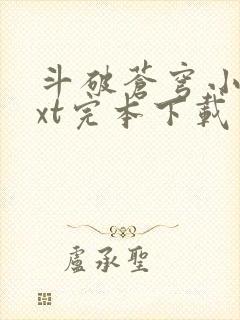 斗破蒼穹小
xt完本下載
盧承聖